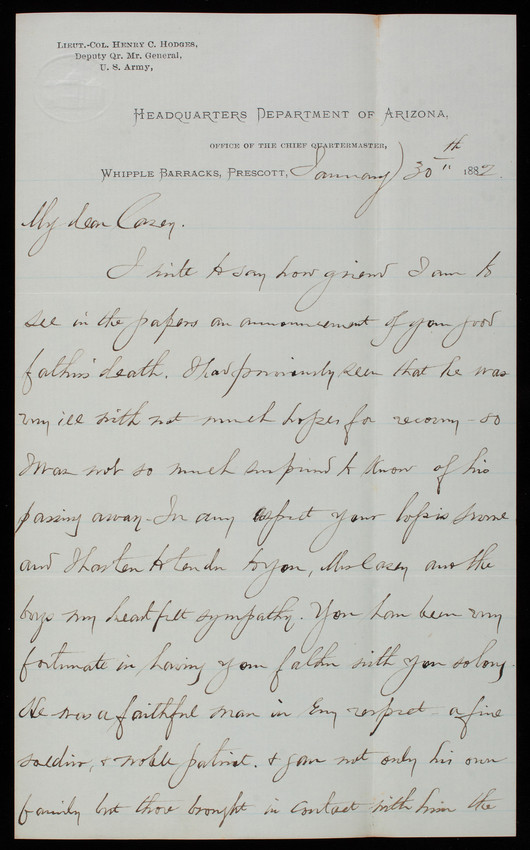 LIEUT.-COL. HENRY C. HODGES,
Deputy Qr. Mr. General,
U. S. Army,
HEADQUARTERS DEPARTMENT OF ARIZONA,
OFFICE OF THE CHIEF QUARTERMASTER,
WHIPPLE BARRACKS, PRESCOTT, January 30th 1882.
My dear Casey.
I write to say how grieved I am to
see in the papers an announcement of your good
father's death. I had previously seen that he was
very ill with not much hopes for recovery - so
I was not so much surprised to know of his
passing away - In any aspect your loss is severe
and I hasten to tender to you, Mrs Casey and the
boys my heartfelt sympathy. You have been very
fortunate in having your father with you so long.
He was a faithful man in every respect - a fine
soldier, & noble patriot. & gave not only his own
family but those brought in contact with him the